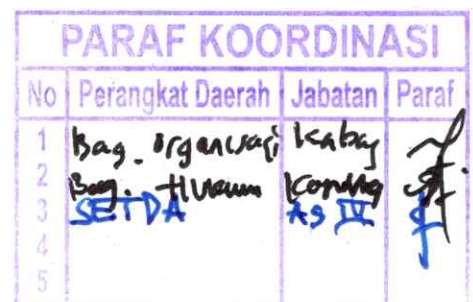 PARAF KOORDINASI
No Perangkat Daerah Jabatan Paraf
1 Bag. Organisasi Kabag
2 Bag. Hukum Kabag
3 SETDA AS IV
4
5